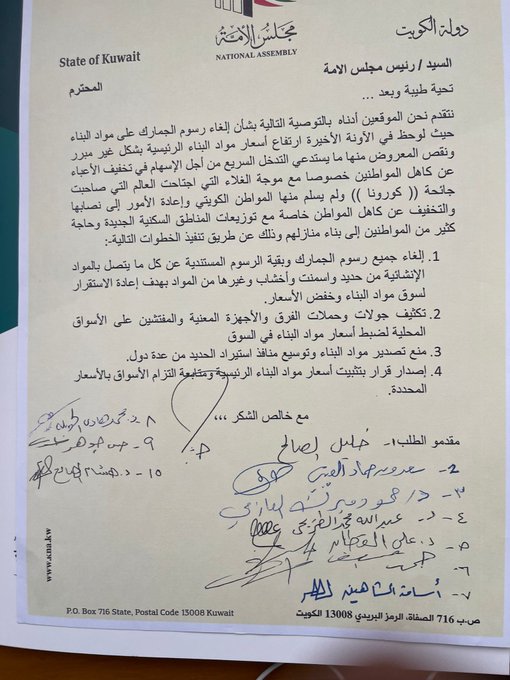 دولة الكويت
مجلس الأمة
NATIONAL ASSEMBLY
State of Kuwait
السيد / رئيس مجلس الامة
المحترم
تحية طيبة وبعد ...
نتقدم نحن الموقعين أدناه بالتوصية التالية بشأن إلغاء رسوم الجمارك على مواد البناء
حيث لوحظ في الآونة الأخيرة ارتفاع أسعار مواد البناء الرئيسية بشكل غير مبرر
ونقص المعروض منها ما يستدعي التدخل السريع من أجل الإسهام في تخفيف الأعباء
عن كاهل المواطنين خصوصا مع موجة الغلاء التي اجتاحت العالم التي صاحبت
جائحة (( كورونا )) ولم يسلم منها المواطن الكويتي وإعادة الأمور إلى نصابها
والتخفيف عن كاهل المواطن خاصة مع توزيعات المناطق السكنية الجديدة وحاجة
كثير من المواطنين إلى بناء منازلهم وذلك عن طريق تنفيذ الخطوات التالية:-
1. إلغاء جميع رسوم الجمارك وبقية الرسوم المستندية عن كل ما يتصل بالمواد
الإنشائية من حديد واسمنت وأخشاب وغيرها من المواد بهدف إعادة الاستقرار
لسوق مواد البناء وخفض الأسعار.
2. تكثيف جولات وحملات الفرق والأجهزة المعنية والمفتشين على الأسواق
المحلية لضبط أسعار مواد البناء في السوق
3. منع تصدير مواد البناء وتوسيع منافذ استيراد الحديد من عدة دول.
4. إصدار قرار بتثبيت أسعار مواد البناء الرئيسية ومتابعة التزام الأسواق بالأسعار
المحددة.
مع خالص الشكر ،،،
مقدمو الطلب ١- خليل الصالح
٢-
٣- د/ حمود مبرك العازمي
٤- د. عبدالله محمد الطريجي
٥- د. علي القطان
٦- حمد
٧- أسامة الشاهين
٨- د. محمد
٩- حسن جوهر
١٠- د. هشام الصالح
www.kna.kw
P.O. Box 716 State, Postal Code 13008 Kuwait
ص.ب 716 الصفاة، الرمز البريدي 13008 الكويت